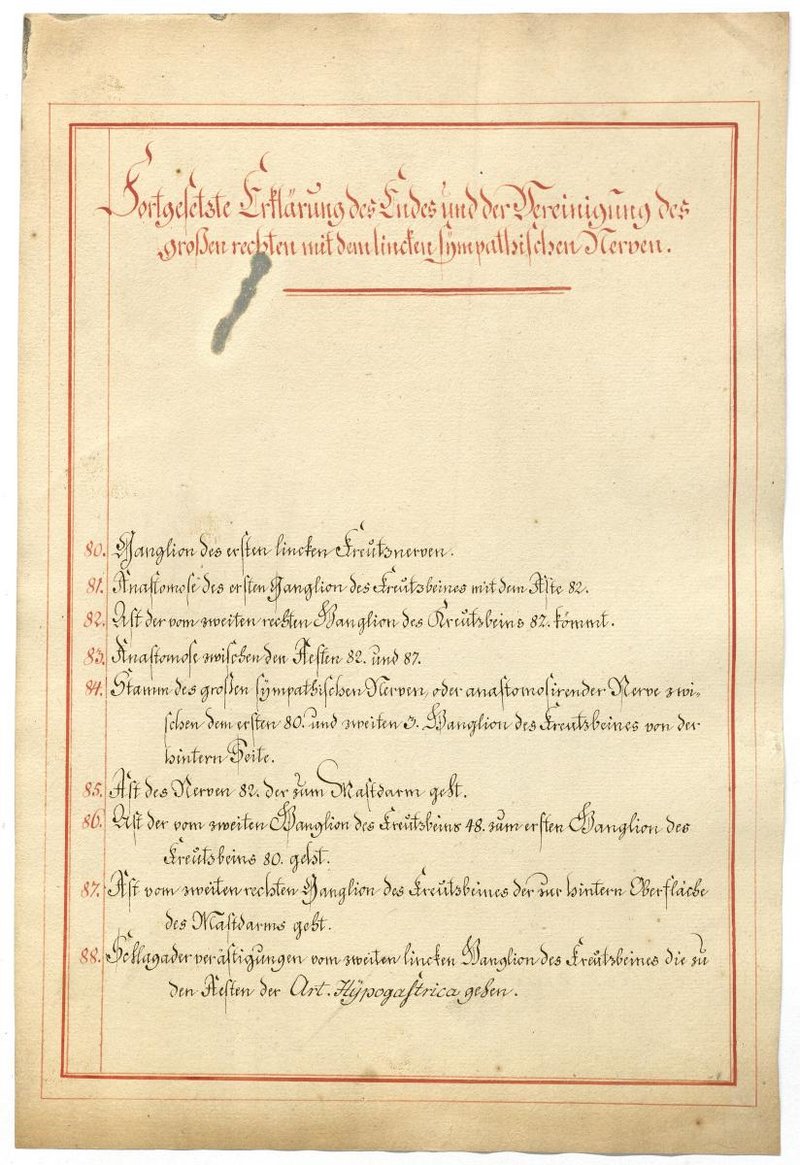 Fortgesetzte Erklärung des Endes und der Vereinigung des
großen rechten mit dem lincken sympathischen Nerven.
80. Ganglion des ersten lincken Kreutznerven.
81. Anastomose des ersten Ganglion des Kreutzbeines mit dem Aste 82.
82. Ast der vom zweiten rechten Ganglion des Kreutzbeins 82. kömmt.
83. Anastomose zwischen den Aesten 82. und 87.
84. Stamm des großen sympathischen Nerven, oder anastomosirender Nerve zwi-
schen dem ersten 80. und zweiten 3. Ganglion des Kreutzbeines von der
hintern Seite.
85. Ast des Nerven 82. der zum Mastdarm geht.
86. Ast der vom zweiten Ganglion des Kreutzbeins 48. zum ersten Ganglion des
Kreutzbeins 80. geht.
87. Ast vom zweiten rechten Ganglion des Kreutzbeines der zur hintern Oberfläche
des Mastdarms geht.
88. Schlagaderverästigungen vom zweiten lincken Ganglion des Kreutzbeines die zu
den Aesten der Art. Hÿpogastrica gehen.